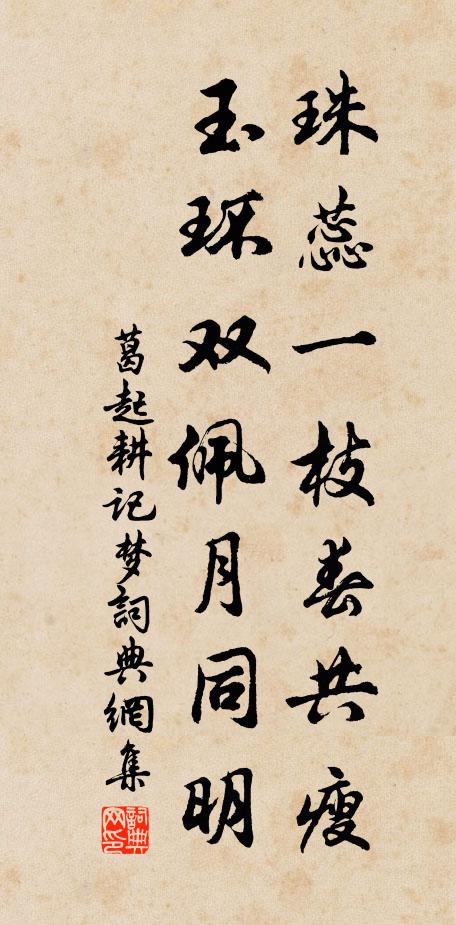 珠蕊一枝春共瘦
玉环双佩月同明
葛起耕记梦词典網集
詞典网印